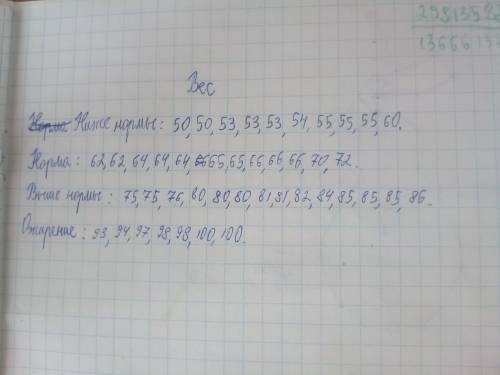 29813592
13666132
Вес
Ниже нормы: 50, 50, 53, 53, 53, 54, 55, 55, 55, 60.
Норма: 62, 62, 64, 64, 64, 65, 65, 66, 66, 66, 70, 72.
Выше нормы: 75, 75, 76, 80, 80, 80, 81, 81, 82, 84, 85, 85, 85, 86.
Ожирение: 93, 94, 97, 98, 98, 100, 100.